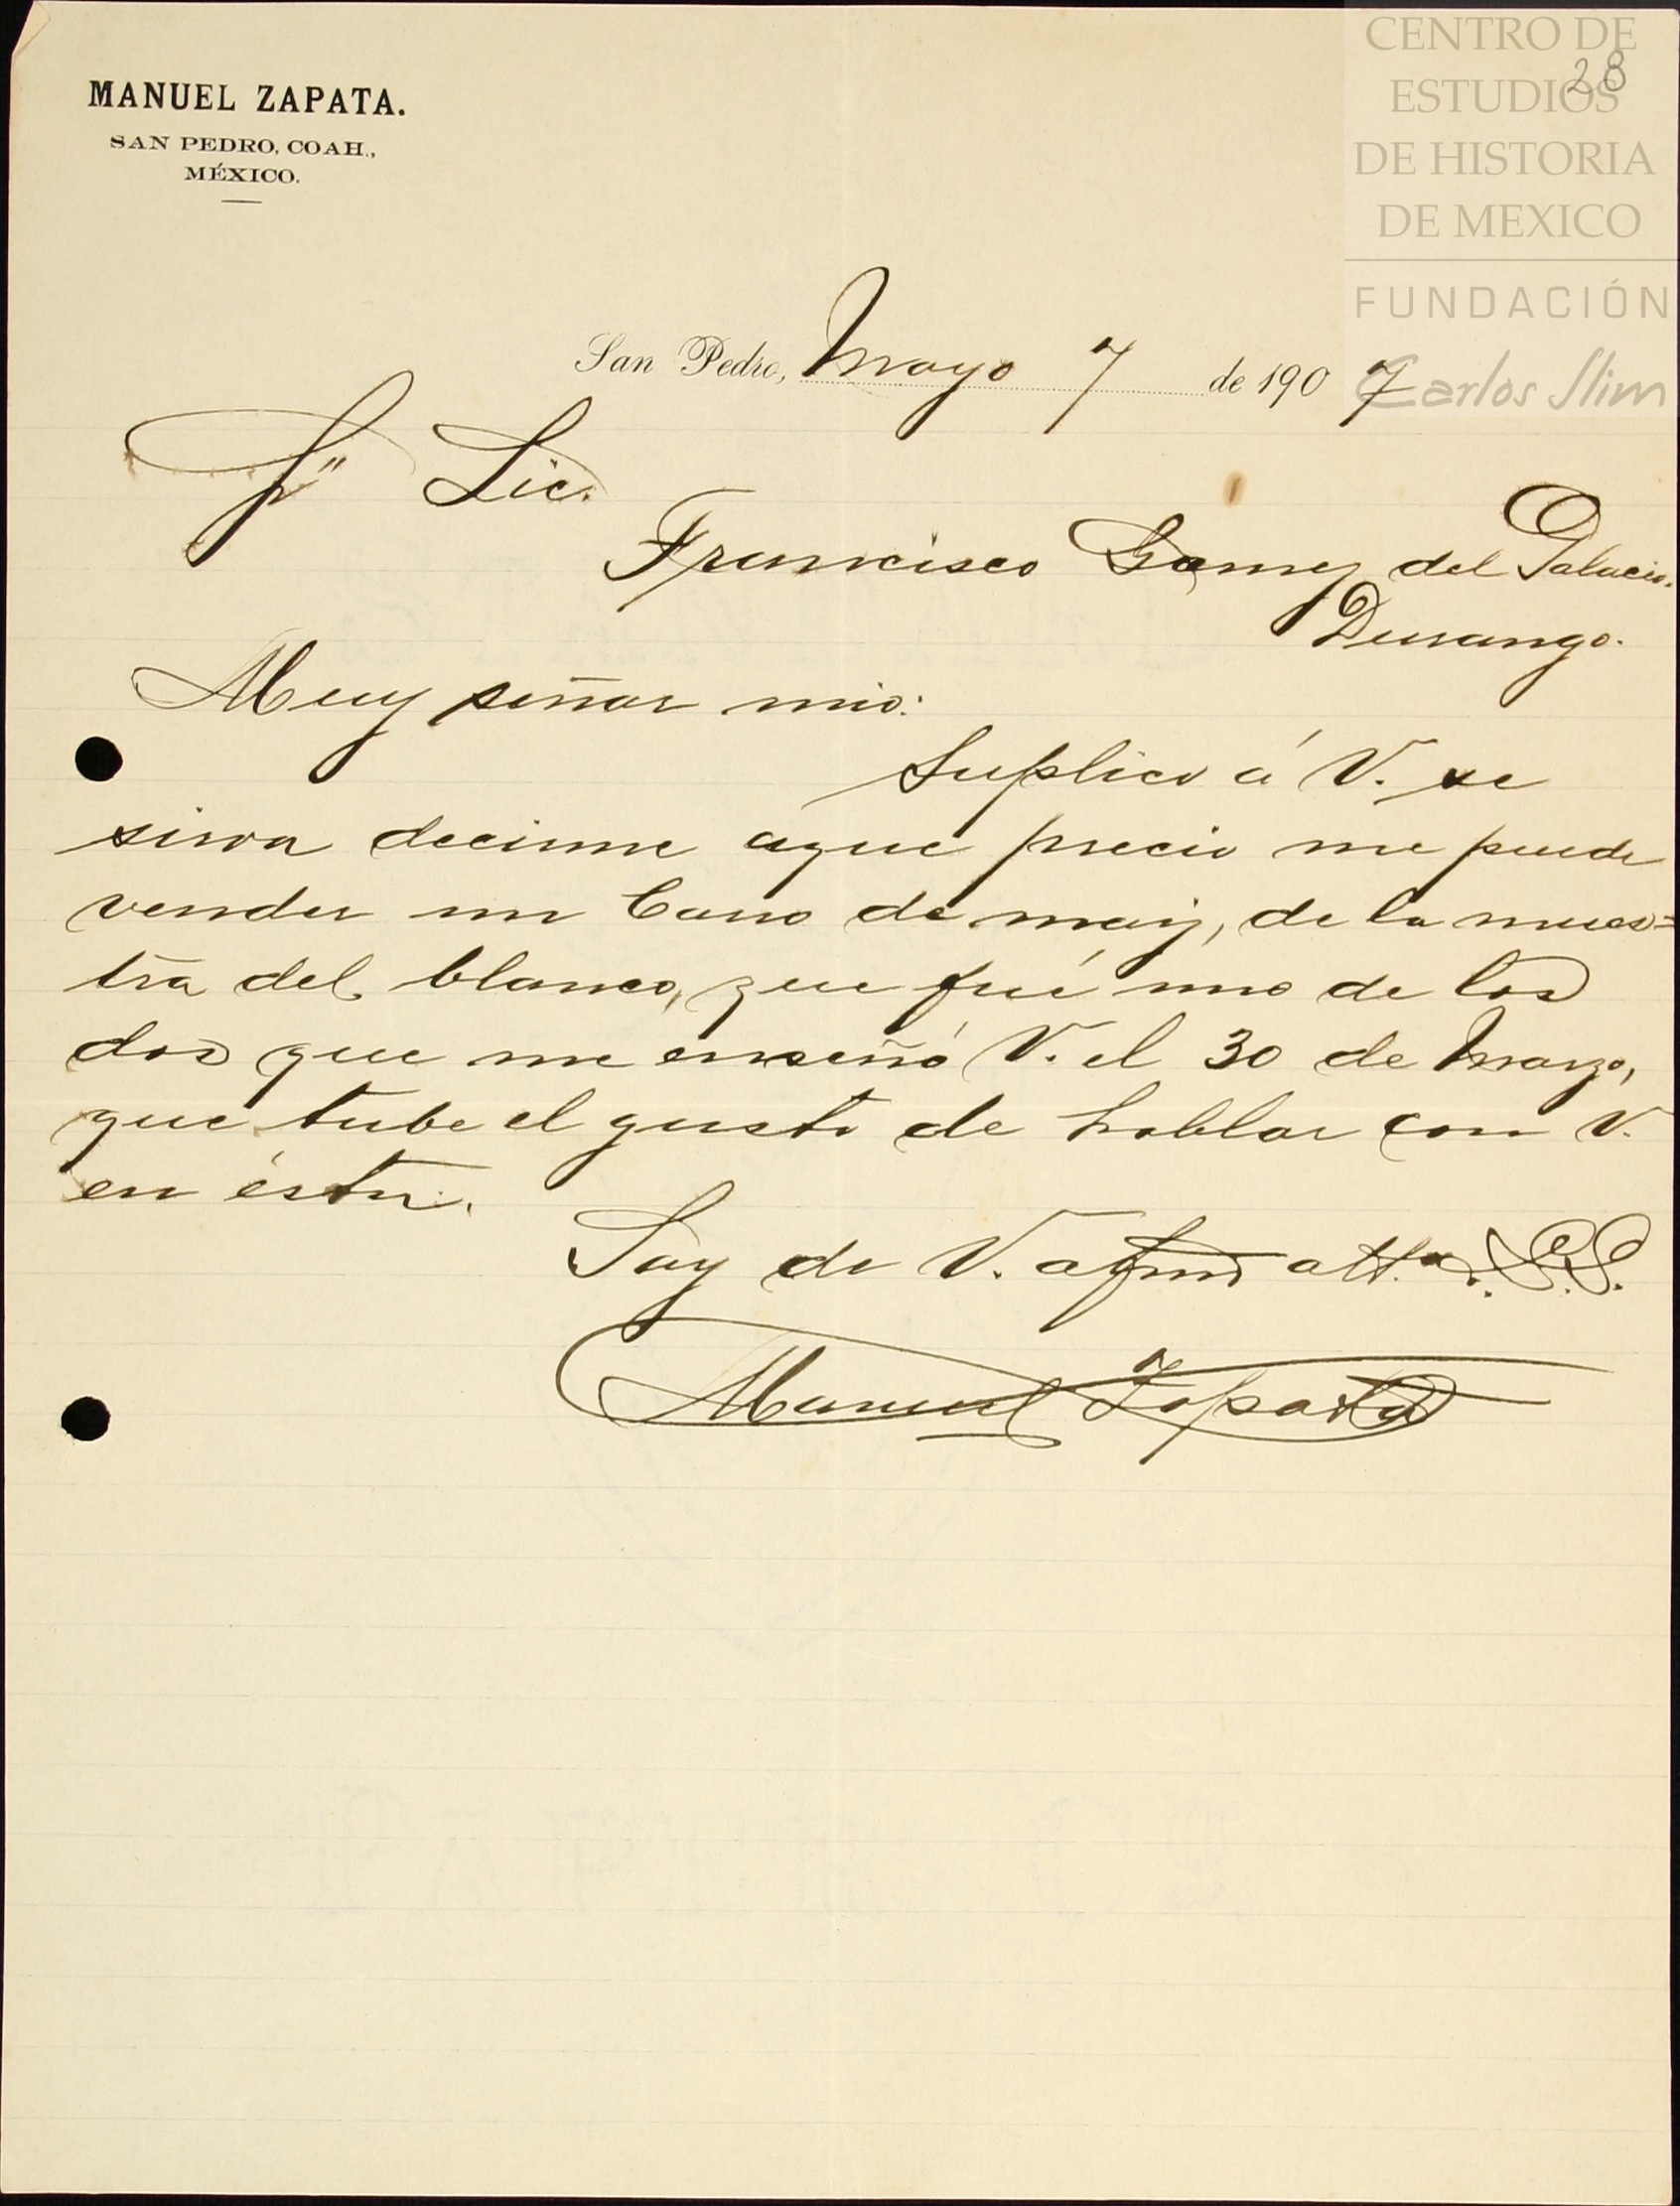 MANUEL ZAPATA.
SAN PEDRO, COAH.,
MÉXICO.
CENTRO DE
ESTUDIOS
DE HISTORIA
DE MEXICO
FUNDACIÓN
Carlos Slim
28
San Pedro, Mayo 7 de 1907
Sr Lic.
Francisco Gomez del Palacio.
Durango.
Muy señor mio:
Suplico á V. se
sirva decirme aque precio me puede
vender un Carro de maiz, de la mues=
tra del blanco, que fué uno de los
dos que me enseñó V. el 30 de Marzo,
que tube el gusto de hablar con V.
en ésta.
Soy de V. afmo atto. S.S.
Manuel Zapata